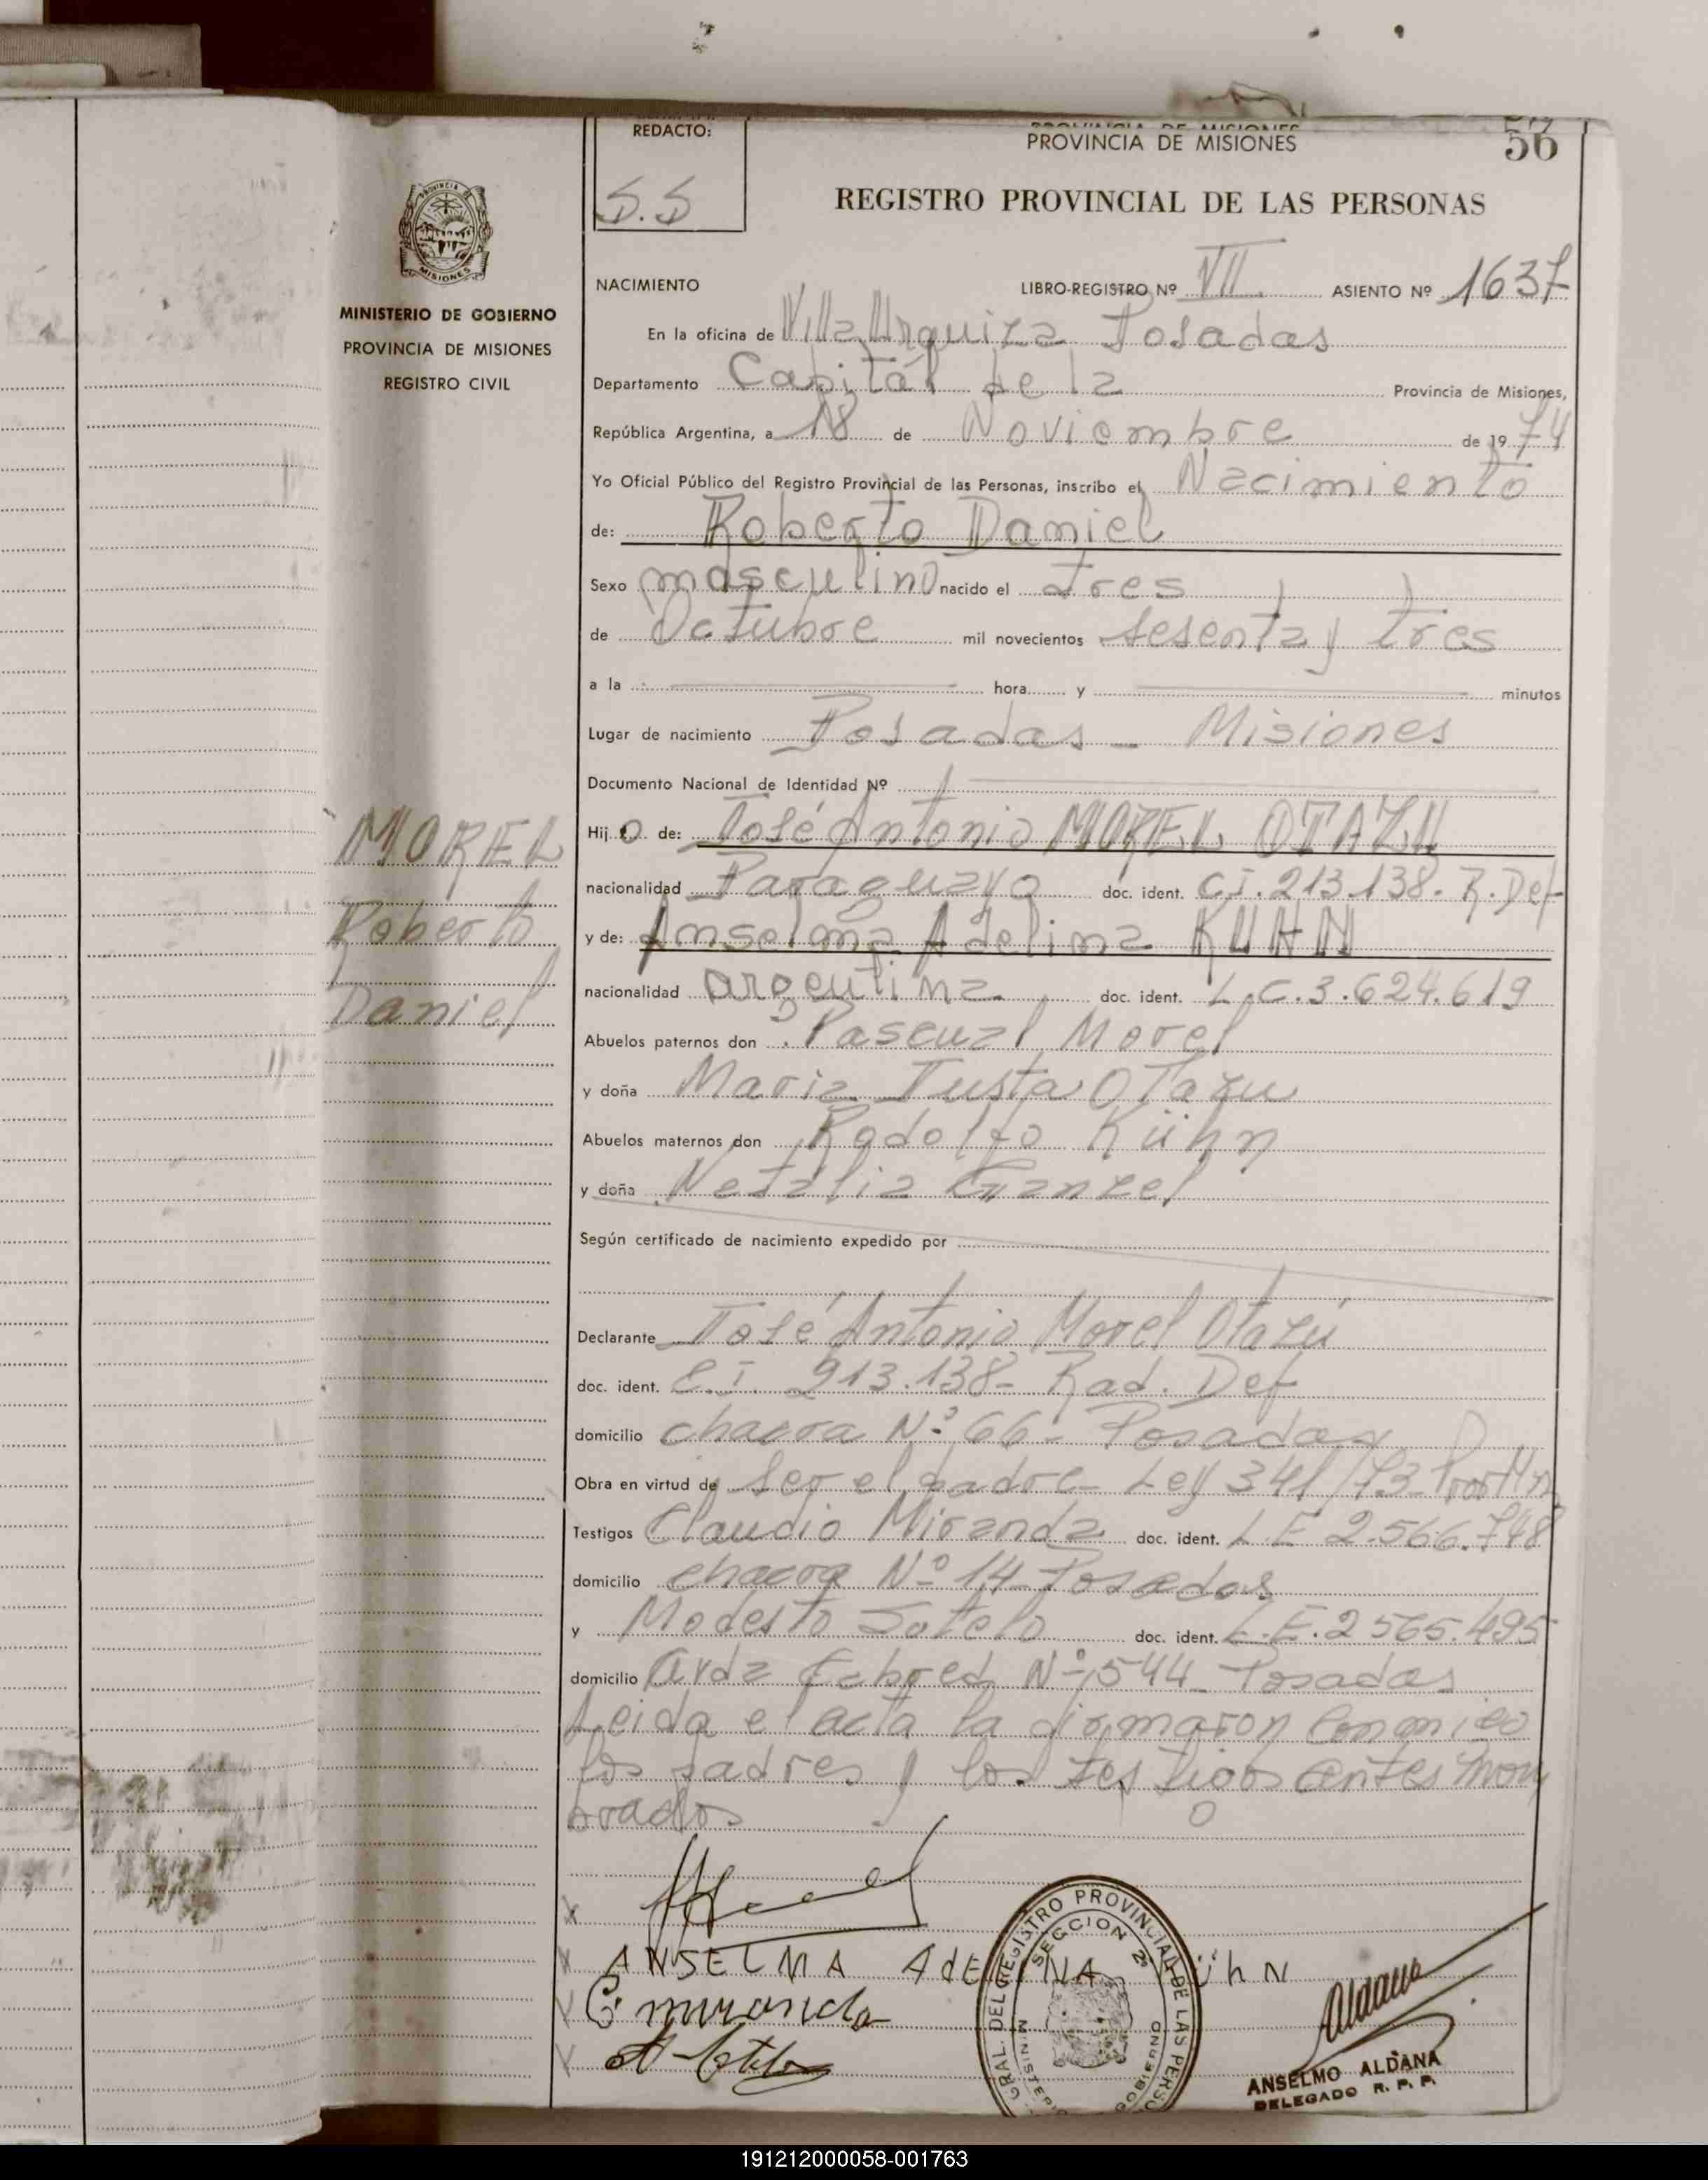 REDACTO:
S.S
PROVINCIA DE MISIONES
56
REGISTRO PROVINCIAL DE LAS PERSONAS
MISIONES
MINISTERIO DE GOBIERNO
PROVINCIA DE MISIONES
REGISTRO CIVIL
NACIMIENTO LIBRO-REGISTRO Nº VII ASIENTO Nº 1637
En la oficina de Villa Urquiza Posadas
Departamento Capital de la Provincia de Misiones,
República Argentina, a 18 de Noviembre de 1974
Yo Oficial Público del Registro Provincial de las Personas, inscribo el Nacimiento
de: Roberto Daniel
Sexo masculino nacido el tres
de Octubre mil novecientos sesenta y tres
a la hora y minutos
Lugar de nacimiento Posadas - Misiones
Documento Nacional de Identidad Nº
Hijo de: José Antonio MOREL OTAZU
nacionalidad Paraguayo doc. ident. C.I. 213.138. R. Def
y de: Anselma Adelina KUHN
nacionalidad argentina doc. ident. L.C. 3.624.619
Abuelos paternos don Pascual Morel
y doña Maria Justa Otazu
Abuelos maternos don Rodolfo Kühn
y doña Natalia Ganzel
Según certificado de nacimiento expedido por
Declarante José Antonio Morel Otazú
doc. ident. C.I. 913.138- Rad. Def
domicilio chacra Nº 66- Posadas
Obra en virtud de ser el padre- Ley 341/73-
Testigos Claudio Miranda doc. ident. L E 2.566.748
domicilio chacra Nº 14- Posadas
y Modesto Sotelo doc. ident. L.E. 2565.495
domicilio Avda Cabred Nº 544- Posadas
Leida el acta la firmaron conmigo
los padres y los testigos antes nom
brados
MOREL
Roberto
Daniel
ANSELMA AdELINA KühN
C. miranda
GRAL. DEL REGISTRO PROVINCIAL DE LAS PERSO
SECCION 2ª
MINISTERIO GOBIERNO
Aldana
ANSELMO ALDANA
DELEGADO R. P. P.
191212000058-001763